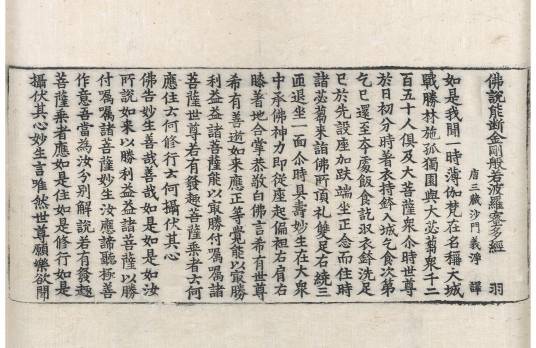 佛說能斷金剛般若波羅蜜多經 羽
唐三藏沙門義淨 譯
如是我聞一時薄伽梵在名稱大城
戰勝林施孤獨園與大苾芻衆千二
百五十人俱及大菩薩衆尒時世尊
於日初分時著衣持鉢入城乞食次第
乞已還至本處飯食訖収衣鉢洗足
已於先設座加趺端坐正念而住時
諸苾芻來詣佛所頂礼雙足右繞三
匝退坐一面尒時具壽妙生在大衆
中承佛神力即從座起偏袒右肩右
膝著地合掌恭敬白佛言希有世尊
希有善逝如來應正等覺能以冣勝
利益益諸菩薩能以冣勝付囑囑諸
菩薩世尊若有發趣菩薩乘者云何
應住云何修行云何攝伏其心
佛告妙生善哉善哉如是如是如汝
所說如來以勝利益益諸菩薩以勝
付囑囑諸菩薩妙生汝應諦聽極善
作意吾當為汝分別解說若有發趣
菩薩乘者應如是住如是修行如是
攝伏其心妙生言唯然世尊願樂欲聞